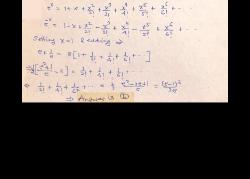 e^x = 1 + x + x²/2! + x³/3! + x⁴/4! + x⁵/5! + x⁶/6! + ...
e^-x = 1 - x + x²/2! - x³/3! + x⁴/4! - x⁵/5! + x⁶/6! - ...
Setting x=1 & adding ⇒
e + 1/e = 2[1 + 1/2! + 1/4! + 1/6! + ...]
⇒ 1/2! + 1/4! + 1/6! + ... = 1/2 = (e-1)²/2e
⇒ Answer is (b)